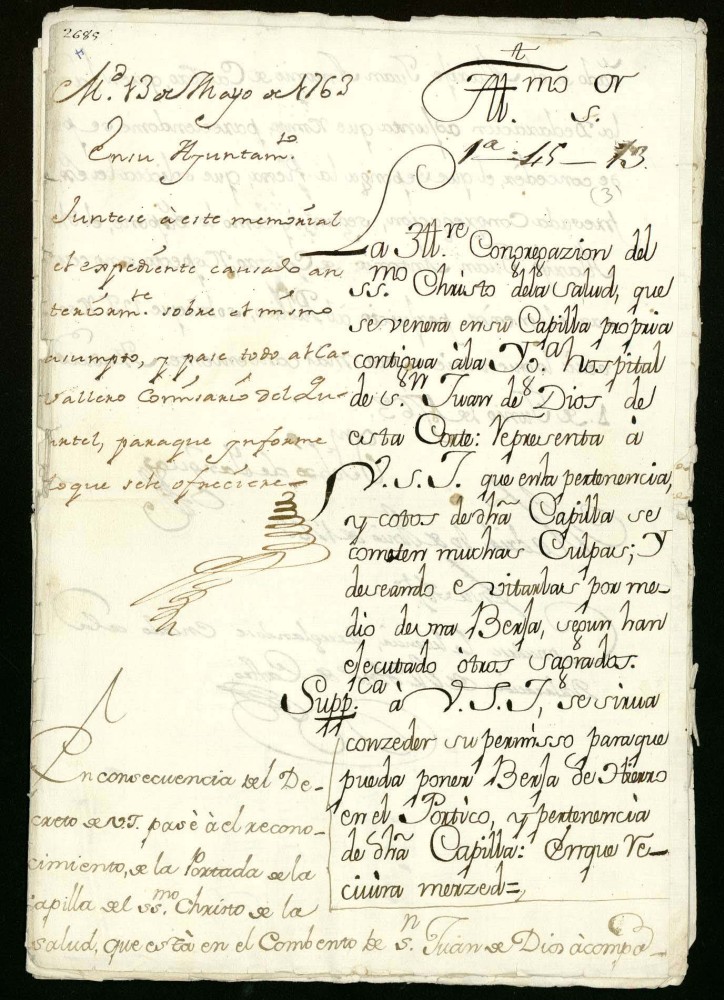 2685
M.d 13 de Mayo de 1763
En su Ayuntam.to
Juntese à este memorial
el expediente causado an
teriorm.te sobre el mismo
asumpto, y pase todo al Ca-
vallero Comisario del Qu-
artel, para que ynforme
lo que se le ofreciere
Yll.mo Sor
S.
1a - 15 - 13.
(3)
La Yll.re Congregazion del
SS.mo Christo dela Salud, que
se venera en su Capilla propria
contigua à la Yg.a hospital
de S.n Juan de Dios de
esta Corte: Representa à
V.S.I. que en la pertenencia,
y cotos de dha Capilla se
cometen muchas Culpas; y
deseando evitarlas por me-
dio de una Berja, segun han
ejecutado òtros sagrados.
Supp.ca à V.S.I, se sirva
conzeder su permisso para que
pueda poner Berja de Hierro
en el Portico, y pertenencia
de dha Capilla: En que Re-
civira merzed=,
En consecuencia del De-
creto de V.I. pasè à el recono-
cimiento, de la Portada de la
Capilla del SS.mo Christo de la
Salud, que està en el Combento de S.n Juan de Dios àcompa-